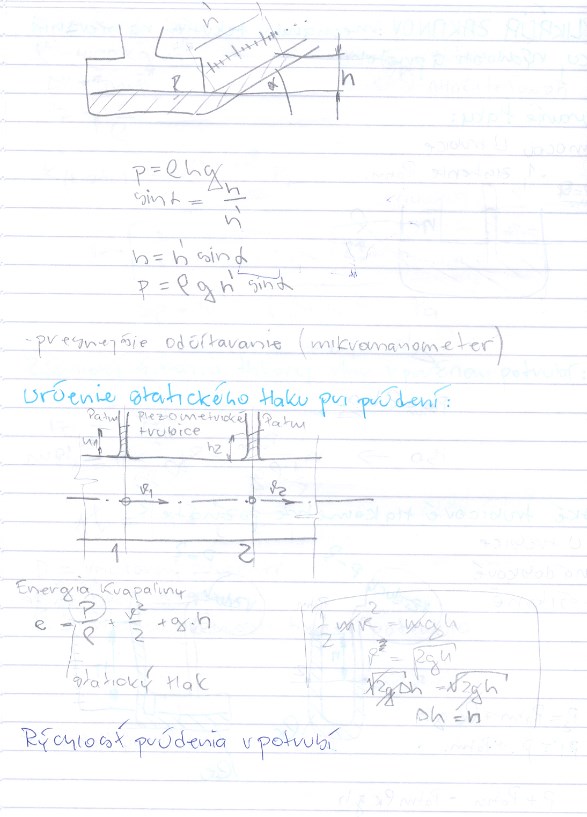 h'
P
α
h
p = ρhg
sinα = h/h'
h = h' sinα
p = ρgh' sinα
- presnejšie odčítavanie (mikromanometer)
Určenie statického tlaku pri prúdení:
Patm piezometrické Patm
trubice
h1 h2
v1 v2
1 2
Energia kvapaliny
e = P/ρ + v²/2 + g.h
statický tlak
1/2 mv² = mgh
√2gΔh = √2gh
Δh = h
Rýchlosť prúdenia v potrubí